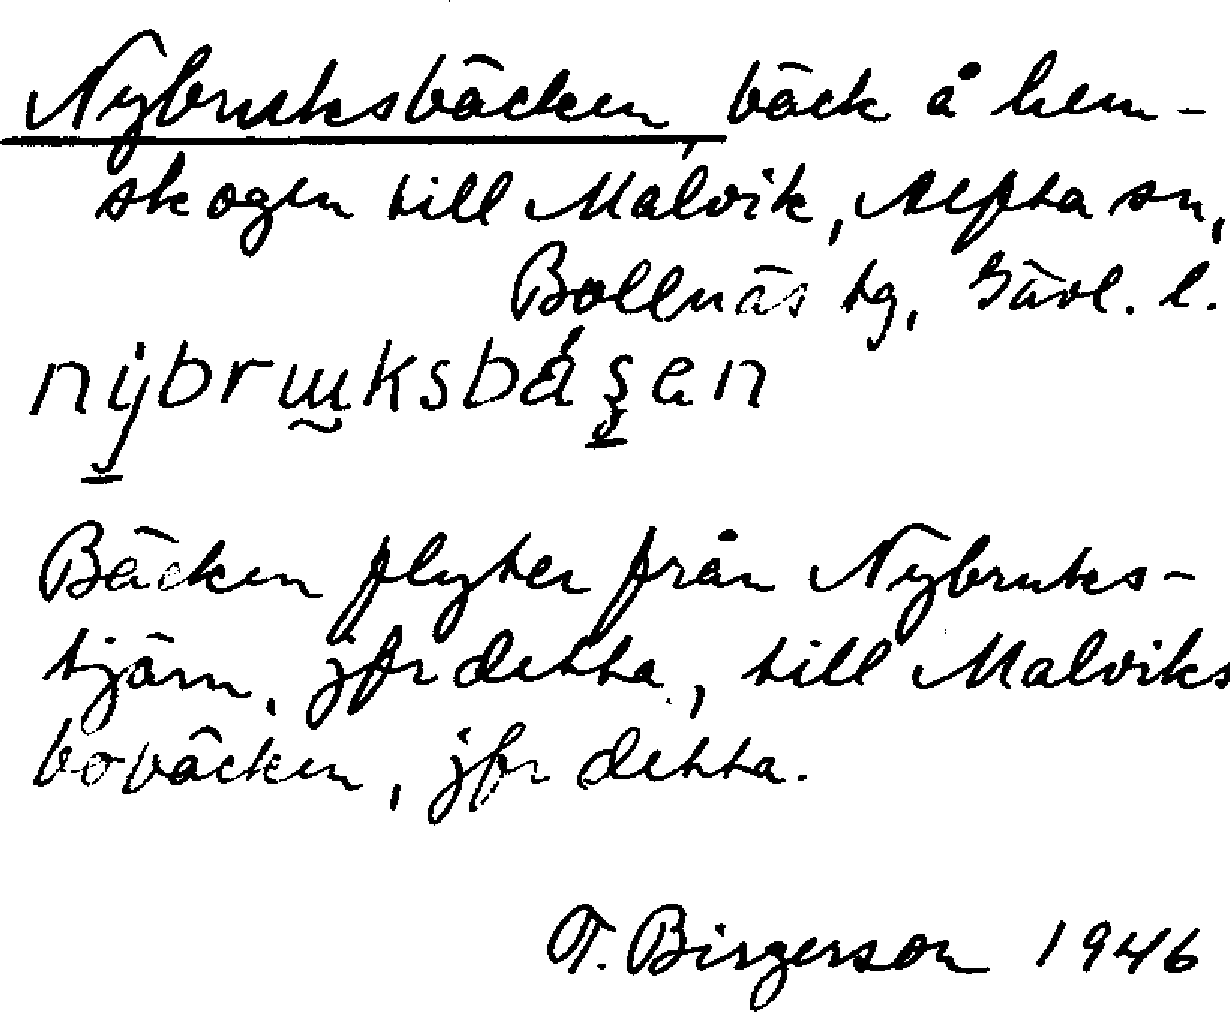 Nybruksbäcken, bäck å hem-
skogen till Malvik, Alfta sn,
Bollnäs tg, Gävl. l.
Bäcken flyter från Nybruks-
tjärn, jfr detta, till Malviks
bobäcken, jfr detta.
T. Birgerson 1946